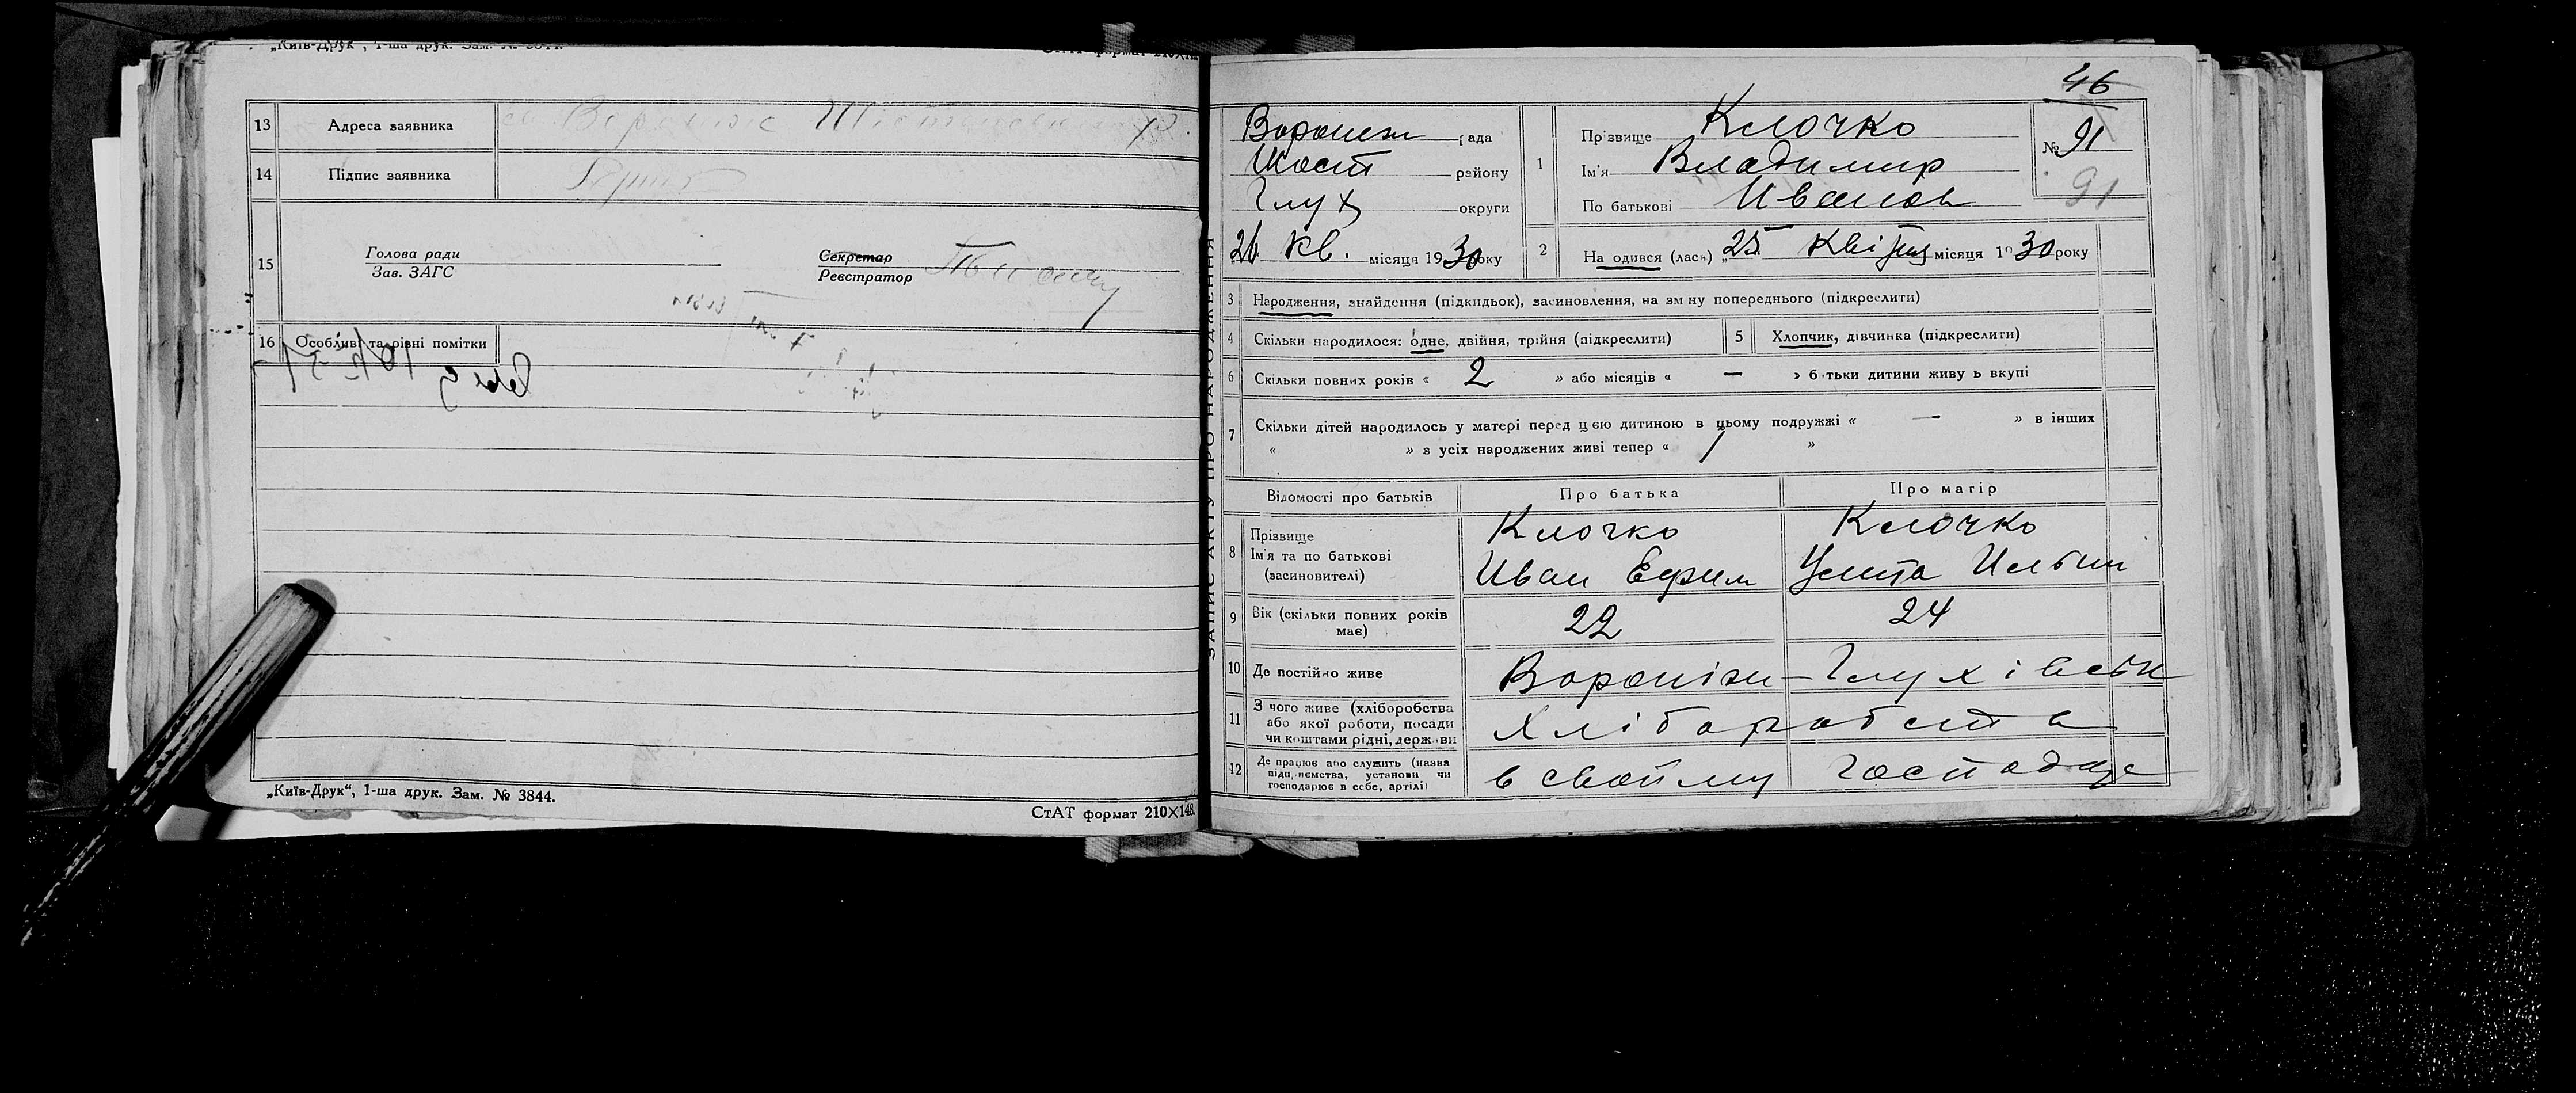 „Київ-Друк", 1-ша друк. Зам. № 3844.
13 Адреса заявника Вороніж
14 Підпис заявника
15 Голова ради
Зав. ЗАГС
Секретар
Реєстратор
16 Особливі та різні помітки
„Київ-Друк", 1-ша друк. Зам. № 3844.
СтАТ формат 210×148.
ЗАПИС АКТУ ПРО НАРОДЖЕННЯ
46
Воронеж рада
Шост району
Глух округи
26 Кв. місяця 1930 року
1 Прізвище Клочко
Ім'я Владимир
По батькові Иванов
№ 91
91
2 На одився (лась) „25 Квітня місяця 1930 року
3 Народження, знайдення (підкидьок), засиновлення, на зм ну попереднього (підкреслити)
4 Скільки народилося: одне, двійня, трійня (підкреслити)
5 Хлопчик, дівчинка (підкреслити)
6 Скільки повних років « 2 » або місяців « — » б тьки дитини живу ь вкупі
7 Скільки дітей народилось у матері перед цією дитиною в цьому подружжі « — » в інших
« » з усіх народжених живі тепер « 1 »
Відомості про батьків Про батька Про матір
8 Прізвище Клочко Клочко
Ім'я та по батькові Иван Ефим Улита Ильин
(засиновителі)
9 Вік (скільки повних років має) 22 24
10 Де постійно живе Вороніж – Глухівськ
11 З чого живе (хліборобства
або якої роботи, посади
чи коштами рідні, держави
Хліборобств
12 Де працює або служить (назва
підп, ємства, установи чи
господарює в себе, артілі)
в свойму господар